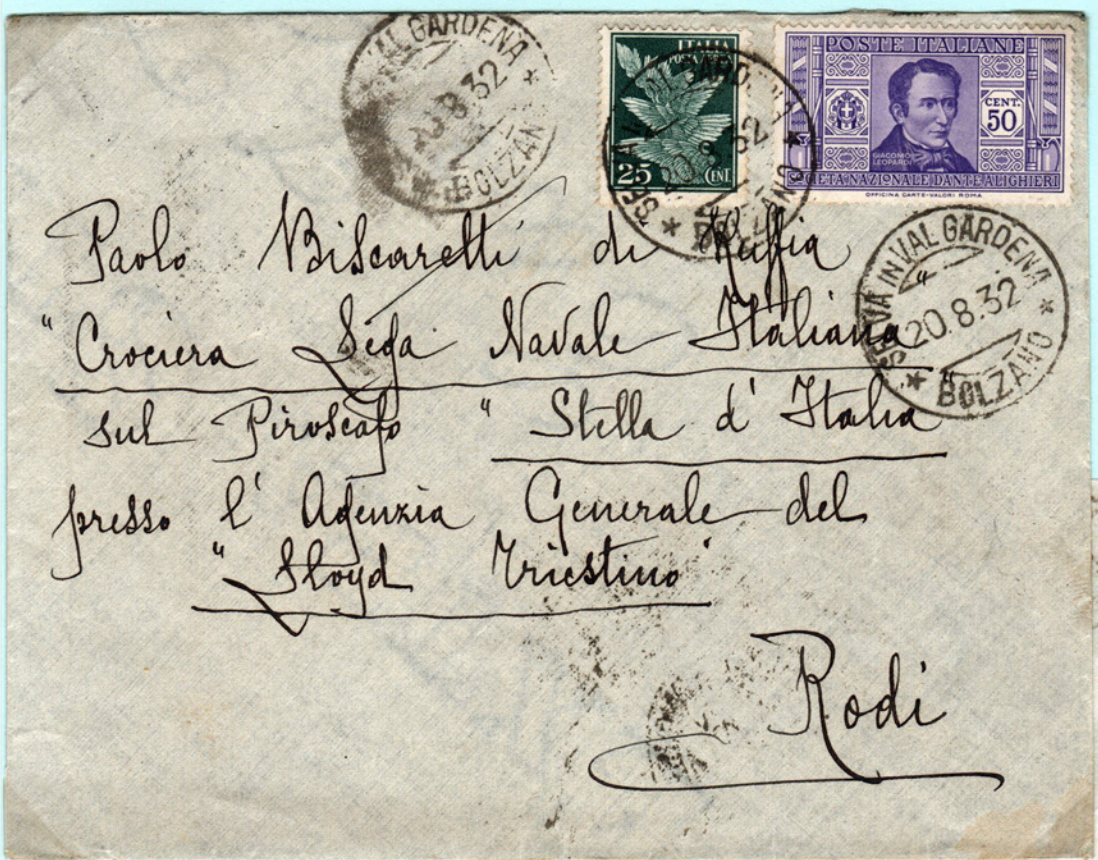 VAL GARDENA
20.8.32
BOLZAN
ITALIA
POSTA
25 CENT.
SELVA IN VAL GARDENA
20.8.32
BOLZANO
POSTE ITALIANE
CENT. 50
GIACOMO
LEOPARDI
SOCIETA NAZIONALE DANTE ALIGHIERI
OFFICINA CARTE-VALORI ROMA
SELVA IN VAL GARDENA
20.8.32
BOLZANO
Paolo Biscaretti di Ruffia
"Crociera Lega Navale Italiana"
sul Piroscafo "Stella d'Italia"
presso l'Agenzia Generale del
"Lloyd Triestino"
Rodi